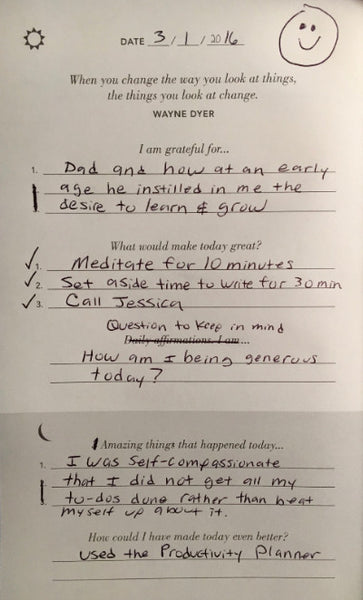 DATE 3/1/2016
When you change the way you look at things,
the things you look at change.
WAYNE DYER
I am grateful for...
1. Dad and how at an early
age he instilled in me the
desire to learn & grow
What would make today great?
1. Meditate for 10 minutes
2. Set aside time to write for 30min
3. Call Jessica
Question to keep in mind
Daily affirmations. I am...
How am I being generous
today?
Amazing things that happened today...
1. I was self-compassionate
that I did not get all my
to-dos done rather than beat
myself up about it.
How could I have made today even better?
used the Productivity Planner